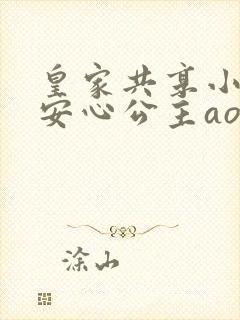 皇家共享小
安心公主ao
涂山